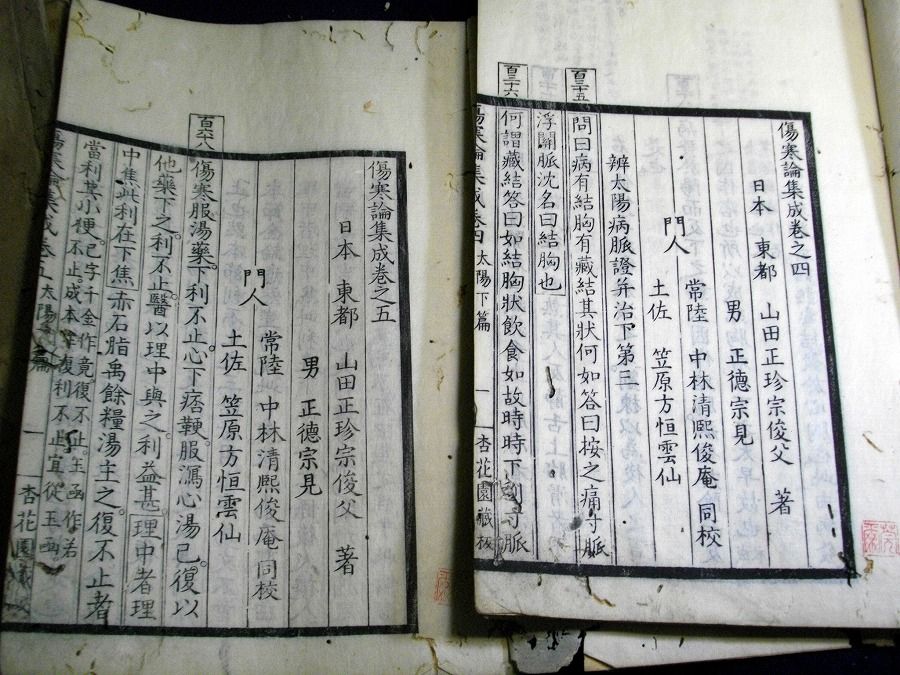 傷寒論集成卷之四
日本 東都 山田正珍宗俊父 著
男 正德宗見
門人 常陸 中林清熙俊庵 同校
土佐 笠原方恒雲仙
辨太陽病脈證并治下第三
百三十五
問曰病有結胸有藏結其狀何如答曰桉之痛寸脈
浮關脈沈名曰結胸也
百三十六
何謂藏結答曰如結胸狀飲食如故時時下利寸脈
傷寒論集成卷四 太陽下篇 一 杏花園藏板
傷寒論集成卷之五
日本 東都 山田正珍宗俊父 著
男 正德宗見
門人 常陸 中林清熙俊庵 同校
土佐 笠原方恒雲仙
百六八
傷寒服湯藥下利不止心下痞鞕服瀉心湯已復以
他藥下之利不止醫以理中與之利益甚理中者理
中焦此利在下焦赤石脂禹餘糧湯主之復不止者
當利其小便 已字千金作竟復不止玉函作若
不止成本 復利不止宜從玉函
傷寒論集成卷五 太陽 篇 一 杏花園藏